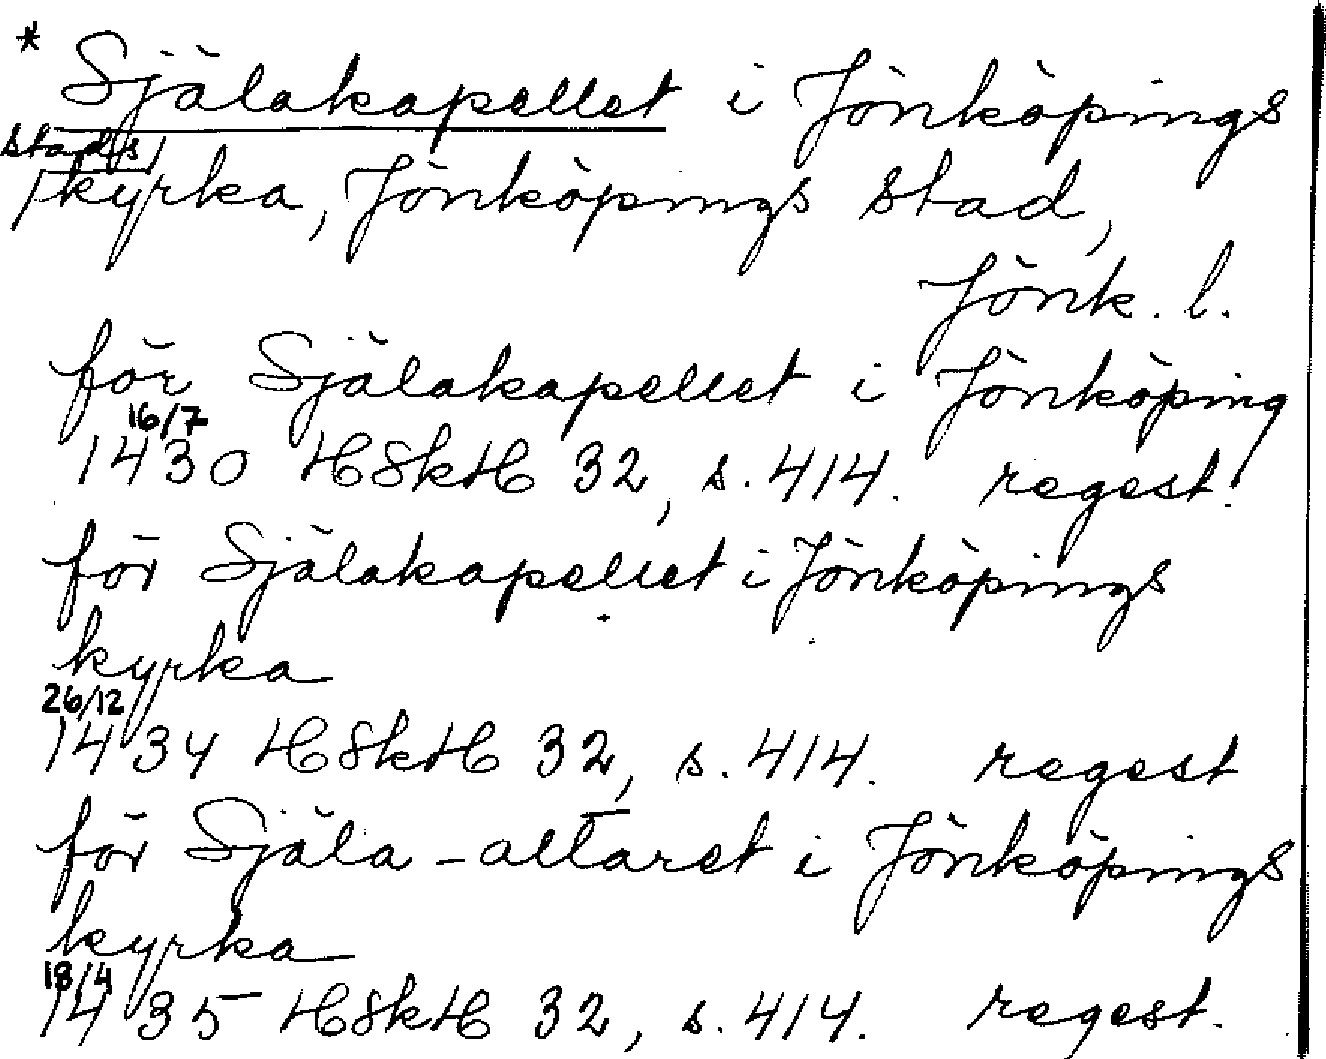 * Själakapellet i Jönköpings
stads
kyrka, Jönköpings stad,
Jönk. l.
för Själakapellet i Jönköping
16/7
1430 HSkH 32, s. 414. regest.
för Själakapellet i Jönköpings
kyrka
26/12
1434 HSkH 32, s. 414. regest
för Själa-altaret i Jönköpings
kyrka
18/4
1435 HSkH 32, s. 414. regest.